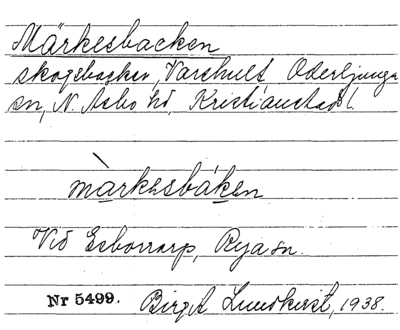 Märkesbacken
skogsbacken, Varshult Oderljunga
sn, N. Åsbo hd, Kristianstads l.
màrkəsbáken
Vid Esborrarp, Rya sn.
Nr 5499. Birgit Lundkvist, 1938.